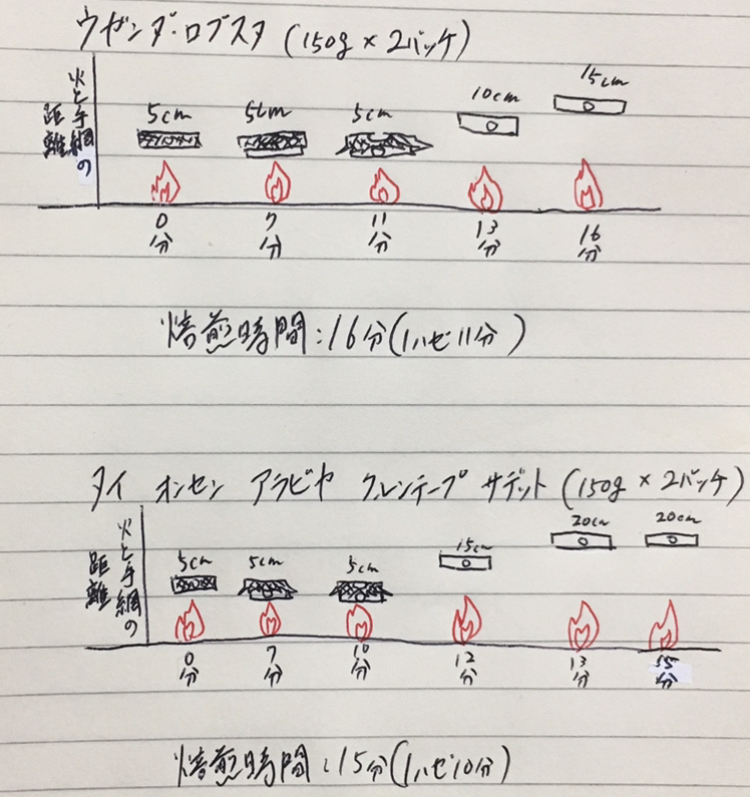 ウガンダ・ロブスタ (150g × 2パッケ)
火と手網の
距離
5cm 5cm 5cm 10cm 15cm
0分 7分 11分 13分 16分
焙煎時間:16分(1ハゼ11分)
タイ オンセン アラビヤ クレンテープ サデット (150g × 2パッケ)
火と手網の
距離
5cm 5cm 5cm 15cm 20cm 20cm
0分 7分 10分 12分 13分 15分
焙煎時間:15分(1ハゼ10分)